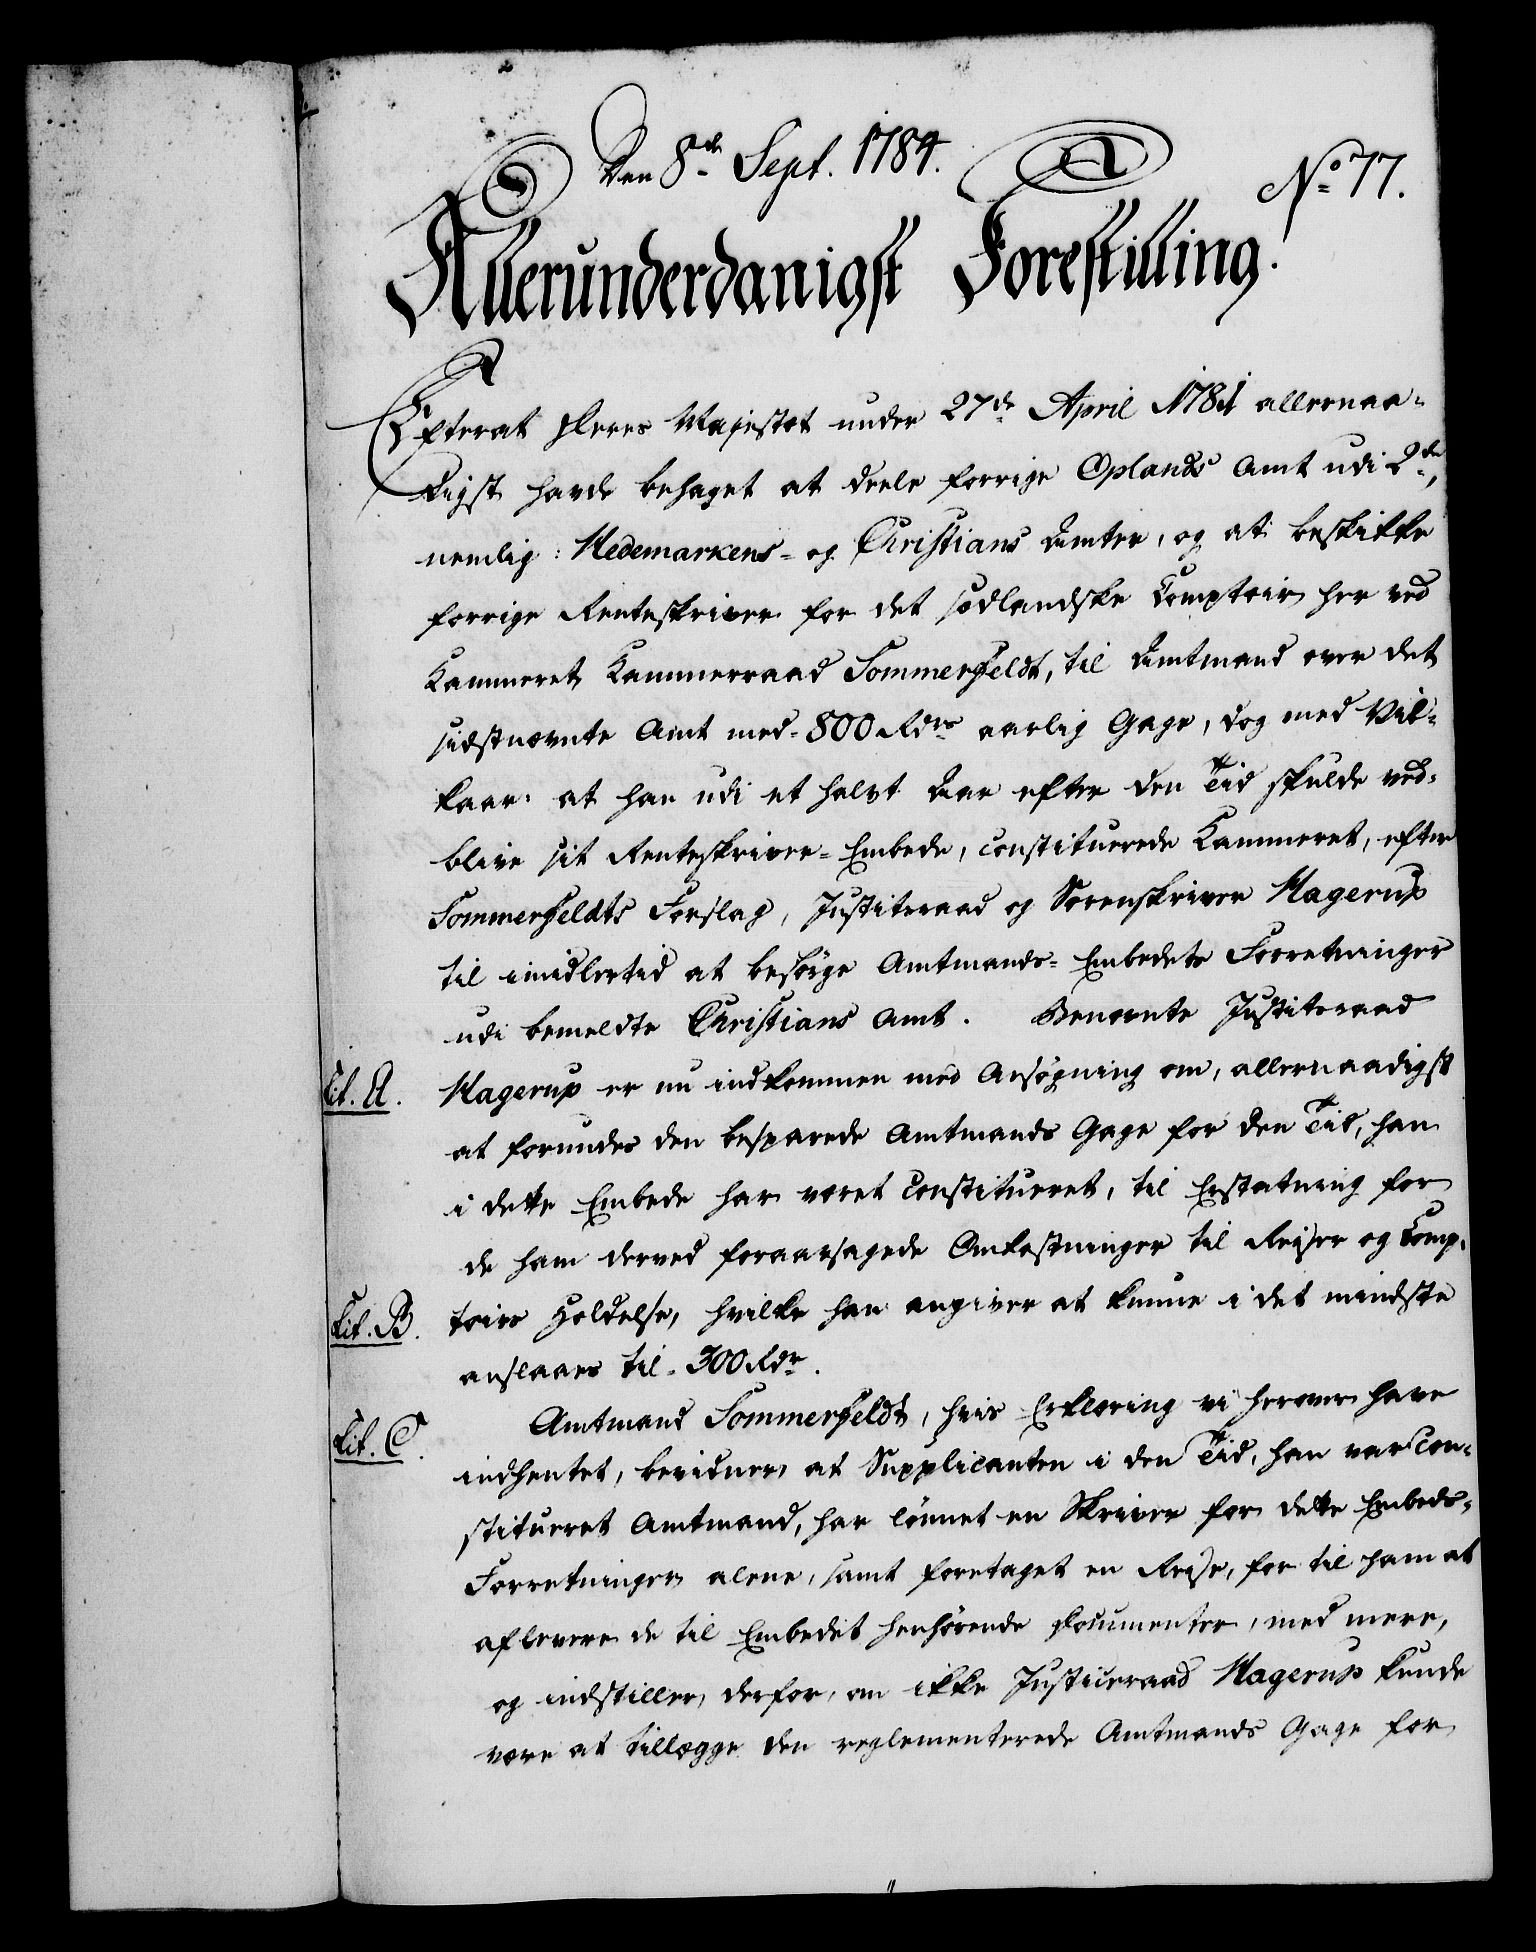 Den 8de Sept. 1784.
No 77.
Allerunderdanigst Forestilling.
Efterat Deres Majestæt under 27de April 1781 allernaa-
digst havde behaget at deele forrige Oplands Amt udi 2de,
nemlig: Hedemarkens- og Christians Amter, og at beskikke
forrige Renteskriver for det sødlandske Comptoir her ved
Kammeret, Kammerraad Sommerfeldt, til Amtmand over det
sidstnævnte Amt med 800 Rdrs aarlig Gage, dog med Vil-
kaar: at han udi et halvt Aar efter den Tid skulde ved-
blive sit Renteskriver-Embede, constituerede Kammeret, efter
Sommerfeldts Forslag, Justiteraad og Sorenskriver Hagerup
til imidlertid at besørge Amtmands-Embedets Forretninger
udi bemeldte Christians Amt. Benævnte Justitsraad
Lit. A. Hagerup er nu indkommen med Ansøgning om, allernaadigst
at forundes den besparede Amtmands Gage for den Tid, han
i dette Embede har været constitueret, til Erstatning for
de ham derved foraarsagede Omkostninger til Reiser og Comp-
Lit. B. toirs Holdelse, hvilke han angiver at kunne i det mindste
anslaaes til 300 Rdr.
Lit. C. Amtmand Sommerfeldt, hvis Erklæring vi herover have
indhentet, bevidner, at Supplicanten i den Tid, han var con-
stitueret Amtmand, har lønnet en Skriver for dette Embeds-
Forretninger alene, samt foretaget en Reise, for til ham at
aflevere de til Embedet henhørende Documenter, med mere,
og indstiller, derfor, om ikke Justiceraad Hagerup kunde
være at tillægge den reglementerede Amtmands Gage for